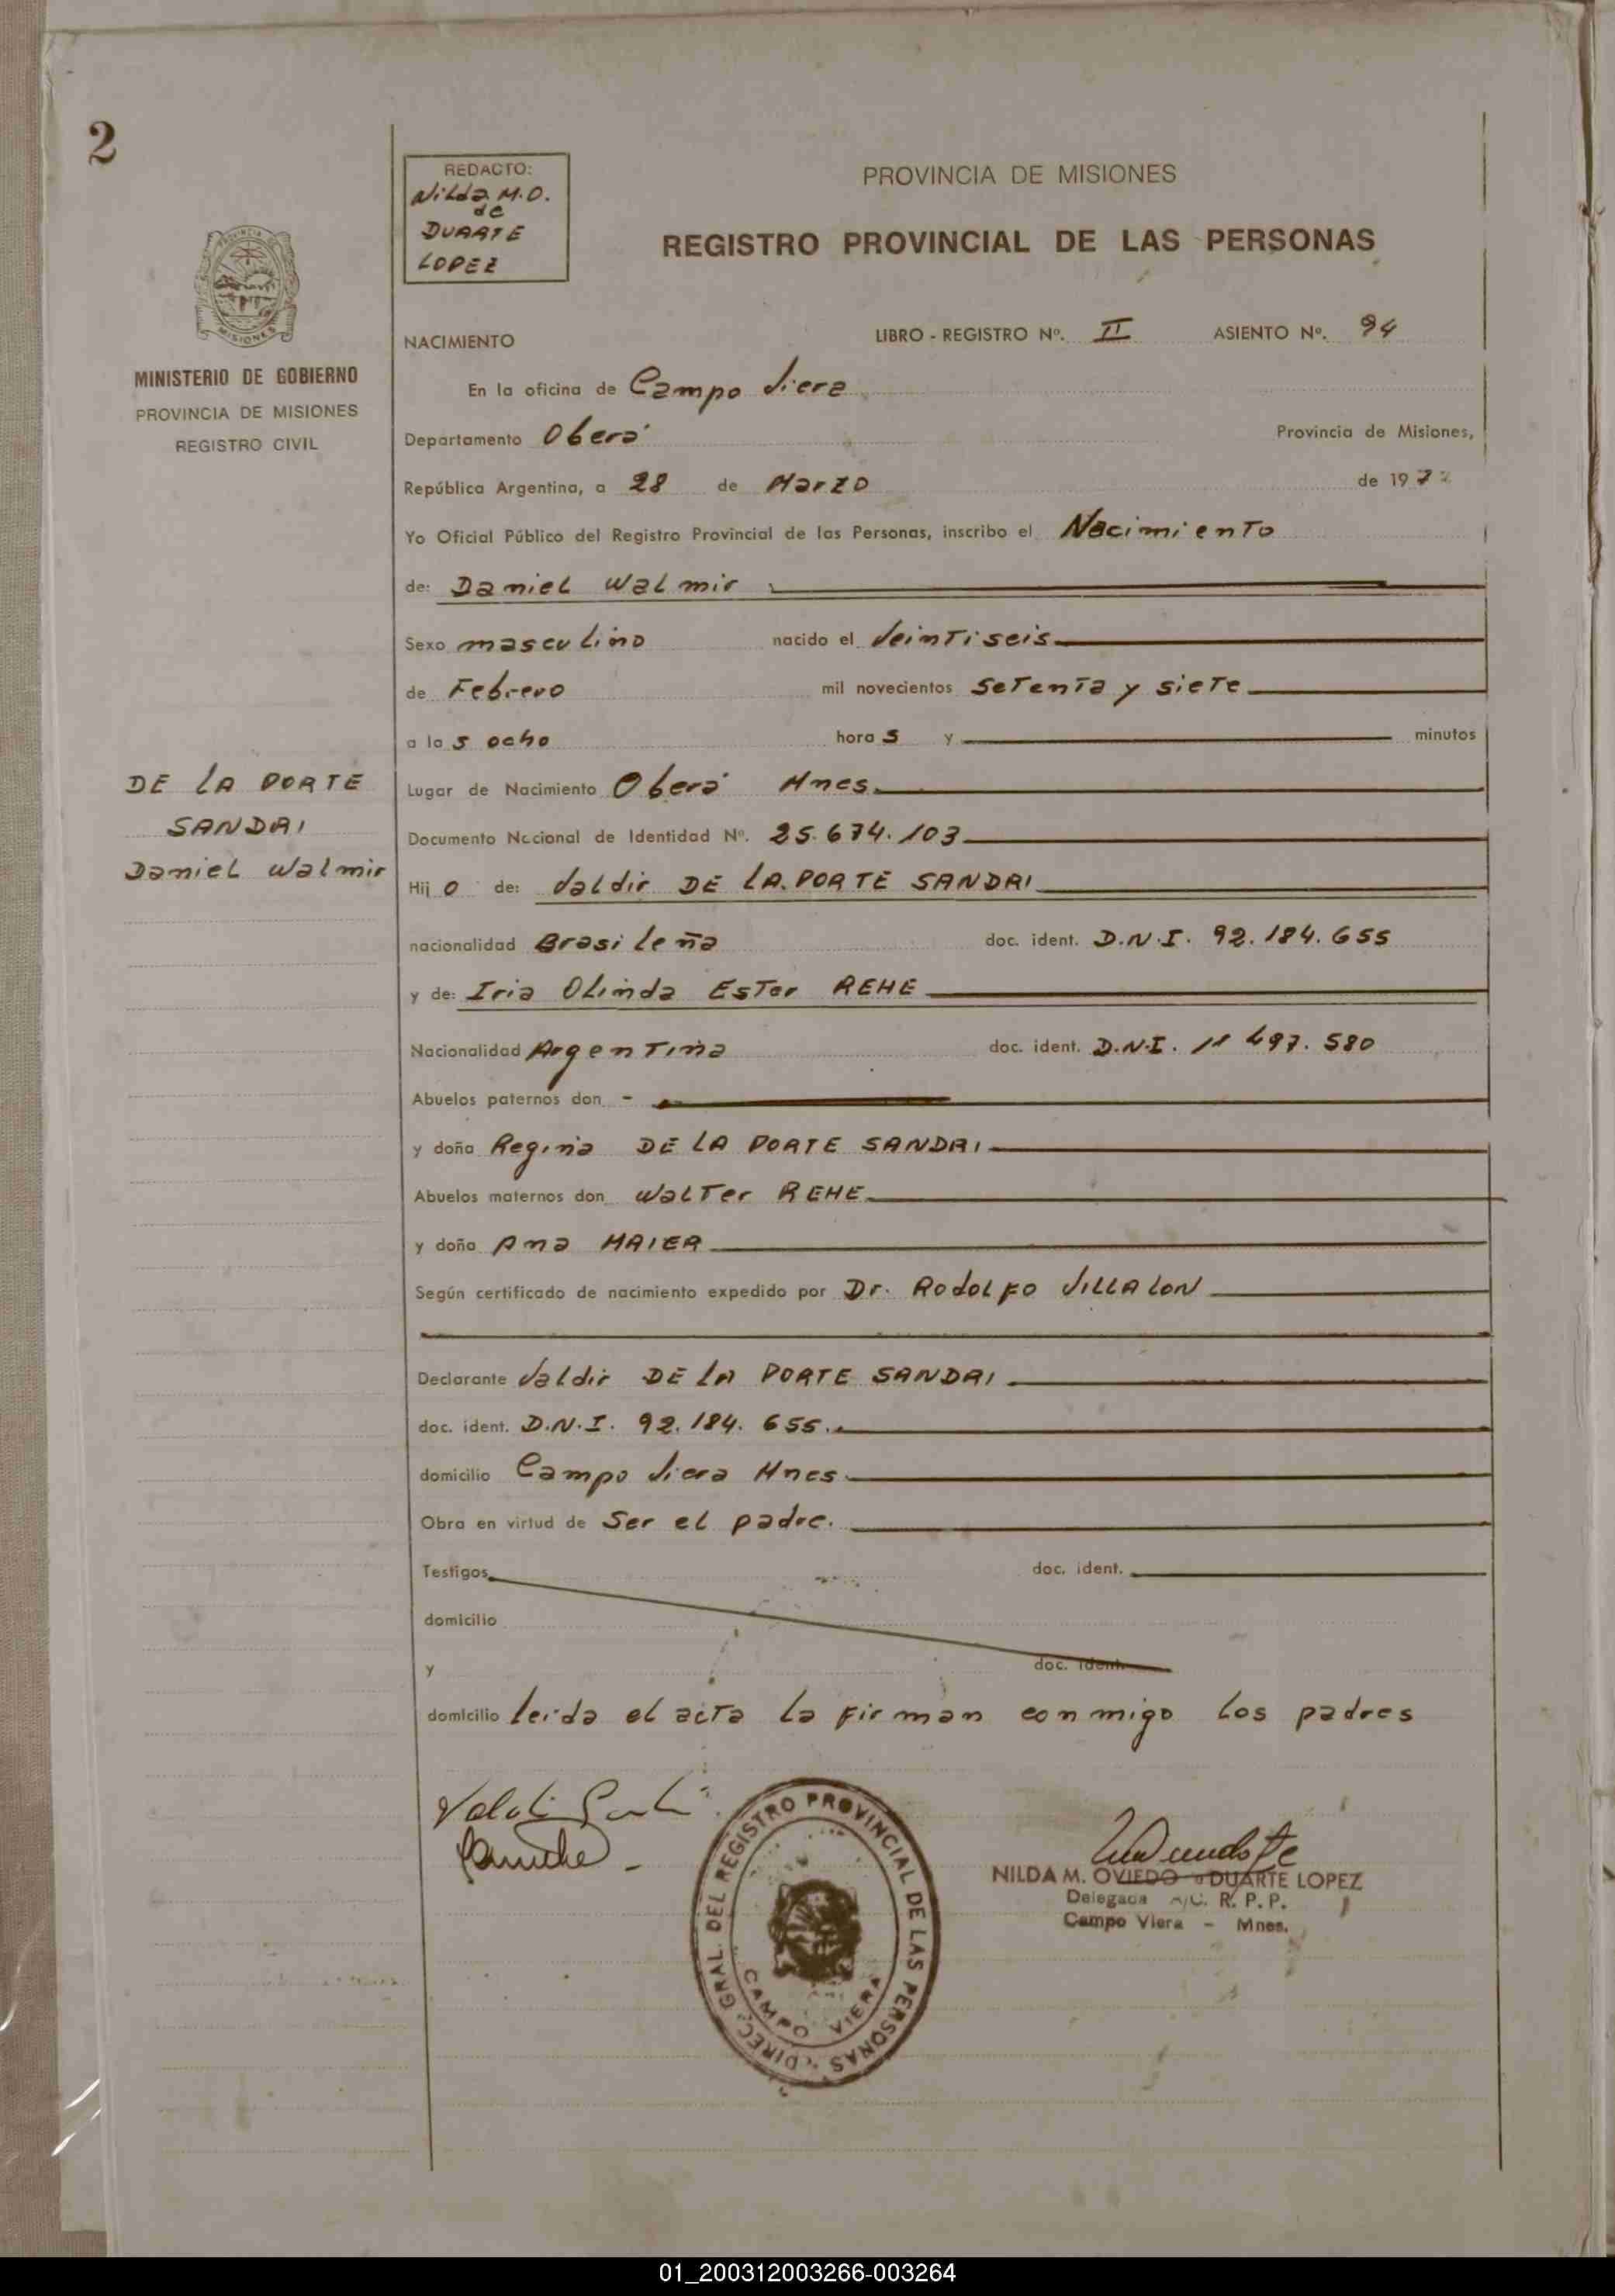 2
REDACTO:
Nilda M.O.
de
DUARTE
LOPEZ
PROVINCIA DE MISIONES
REGISTRO PROVINCIAL DE LAS PERSONAS
PROVINCIA DE
MISIONES
MINISTERIO DE GOBIERNO
PROVINCIA DE MISIONES
REGISTRO CIVIL
NACIMIENTO LIBRO - REGISTRO Nº. II ASIENTO Nº. 94
En la oficina de Campo Viera
Departamento Oberá Provincia de Misiones,
República Argentina, a 28 de Marzo de 197
Yo Oficial Público del Registro Provincial de las Personas, inscribo el Nacimiento
de: Daniel Walmir
Sexo masculino nacido el Veintiseis
de Febrero mil novecientos Setenta y siete
a las ocho horas y minutos
DE LA PORTE
SANDRI
Daniel Walmir
Lugar de Nacimiento Oberá Mnes
Documento Nacional de Identidad Nº. 25.674.103
Hijo de: Valdir DE LA PORTE SANDRI
nacionalidad Brasileña doc. ident. D.N.I. 92.184.655
y de: Iria Olinda Ester REHE
Nacionalidad Argentina doc. ident. D.N.I. 11 497.580
Abuelos paternos don -
y doña Regina DE LA PORTE SANDRI
Abuelos maternos don Walter REHE
y doña Ana MAIER
Según certificado de nacimiento expedido por Dr. RodoLFo VILLALON
Declarante Valdir DE LA PORTE SANDRI
doc. ident. D.N.I. 92.184.655.
domicilio Campo Viera Mnes
Obra en virtud de Ser el padre.
Testigos doc. ident.
domicilio
y doc. ident.
domicilio leida el acta la firman conmigo los padres
DIREC. GRAL. DEL REGISTRO PROVINCIAL DE LAS PERSONAS
CAMPO VIERA
NILDA M. OVIEDO DUARTE LOPEZ
Delegada A/C. R. P. P.
Campo Viera - Mnes.
01_200312003266-003264